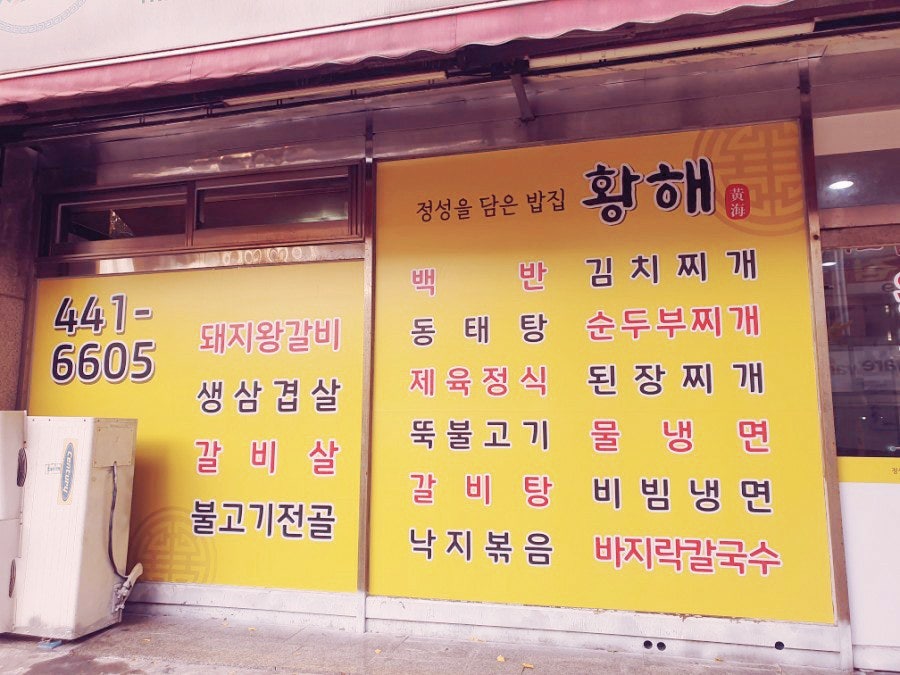 정성을 담은 밥집 황해 黃海
441-
6605
돼지왕갈비
생삼겹살
갈비살
불고기전골
백반 김치찌개
동태탕 순두부찌개
제육정식 된장찌개
뚝불고기 물냉면
갈비탕 비빔냉면
낙지볶음 바지락칼국수
Century